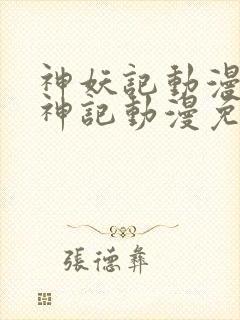 神妖記動漫
神記動漫免
張德彝